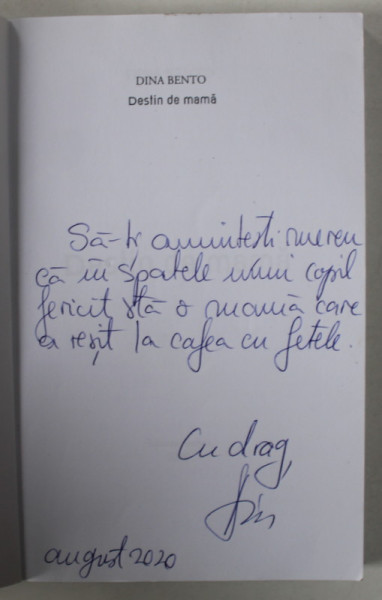 DINA BENTO
Destin de mamă
Să-ți amintești mereu
că în spatele unui copil
fericit stă o mamă care
a ieșit la cafea cu fetele.
Cu drag,
august 2020